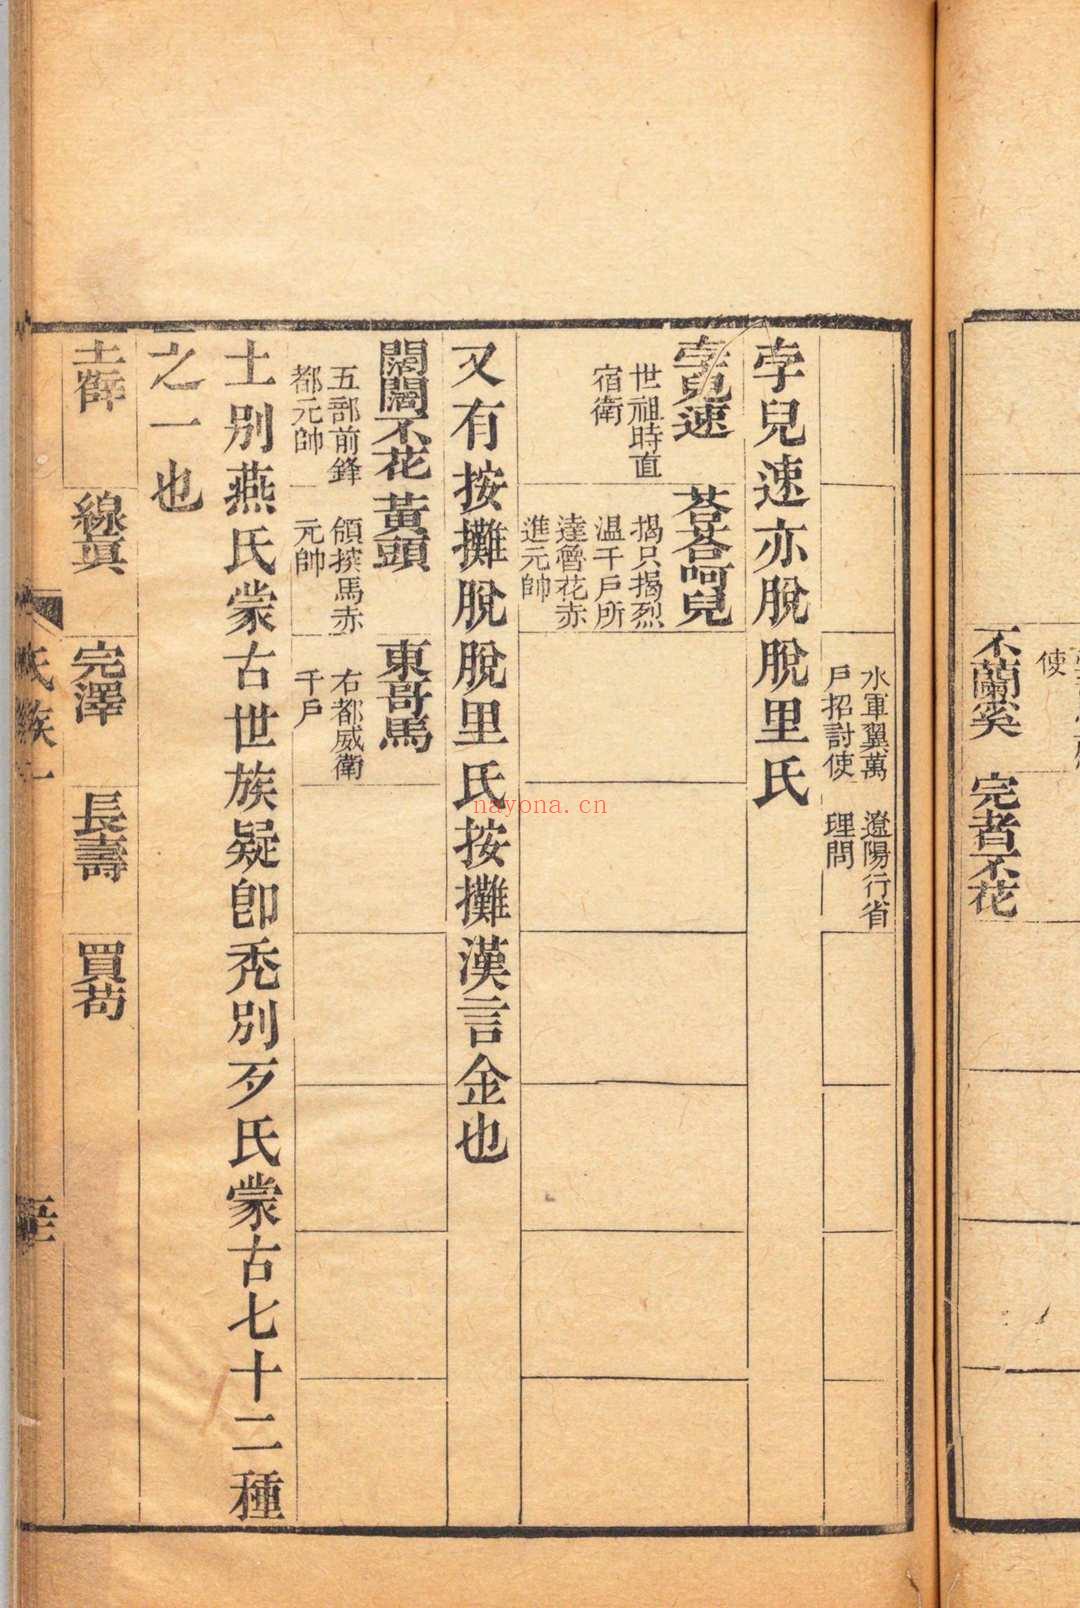 使
不蘭奚
完者不花
水軍翼萬
戶招討使
遼陽行省
理問
孛兒速亦脫脫里氏
孛兒速
世祖時直
宿衛
荅荅呵兒
揭只揭烈
温千戶所
達魯花赤
進元帥
又有按攤脫脫里氏按攤漢言金也
闊闊不花
五部前鋒
都元帥
黃頭
頜揬馬赤
元帥
東哥馬
右都威衛
千戶
土別燕氏蒙古世族疑卽禿別歹氏蒙古七十二種
之一也
土薛
線眞
完澤
長壽
買苟
氏族一
nayona.cn